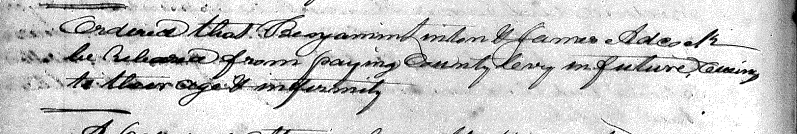 Ordered that Benjamin inton & James Adcock
be released from paying County levy in future, owing
to their age & infirmity